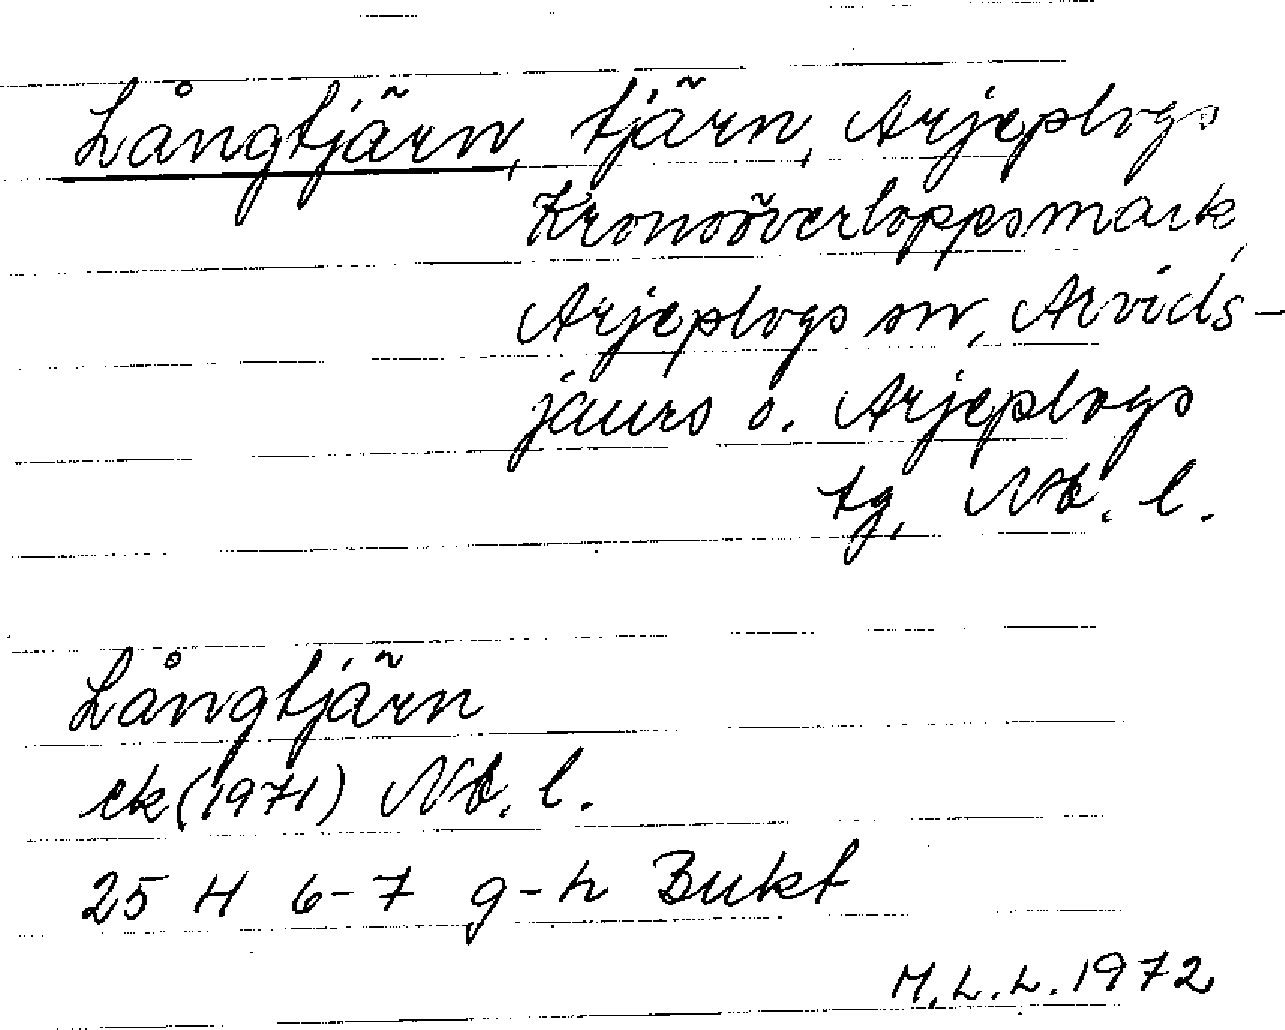 Långtjärn, tjärn, Arjeplogs
Kronoöverloppsmark,
Arjeplogs sn, Arvids-
jaurs o. Arjeplogs
tg, Nb. l.
Långtjärn
ek (1971) Nb. l.
25 H 6-7 g-h Bukt
M.L.L. 1972